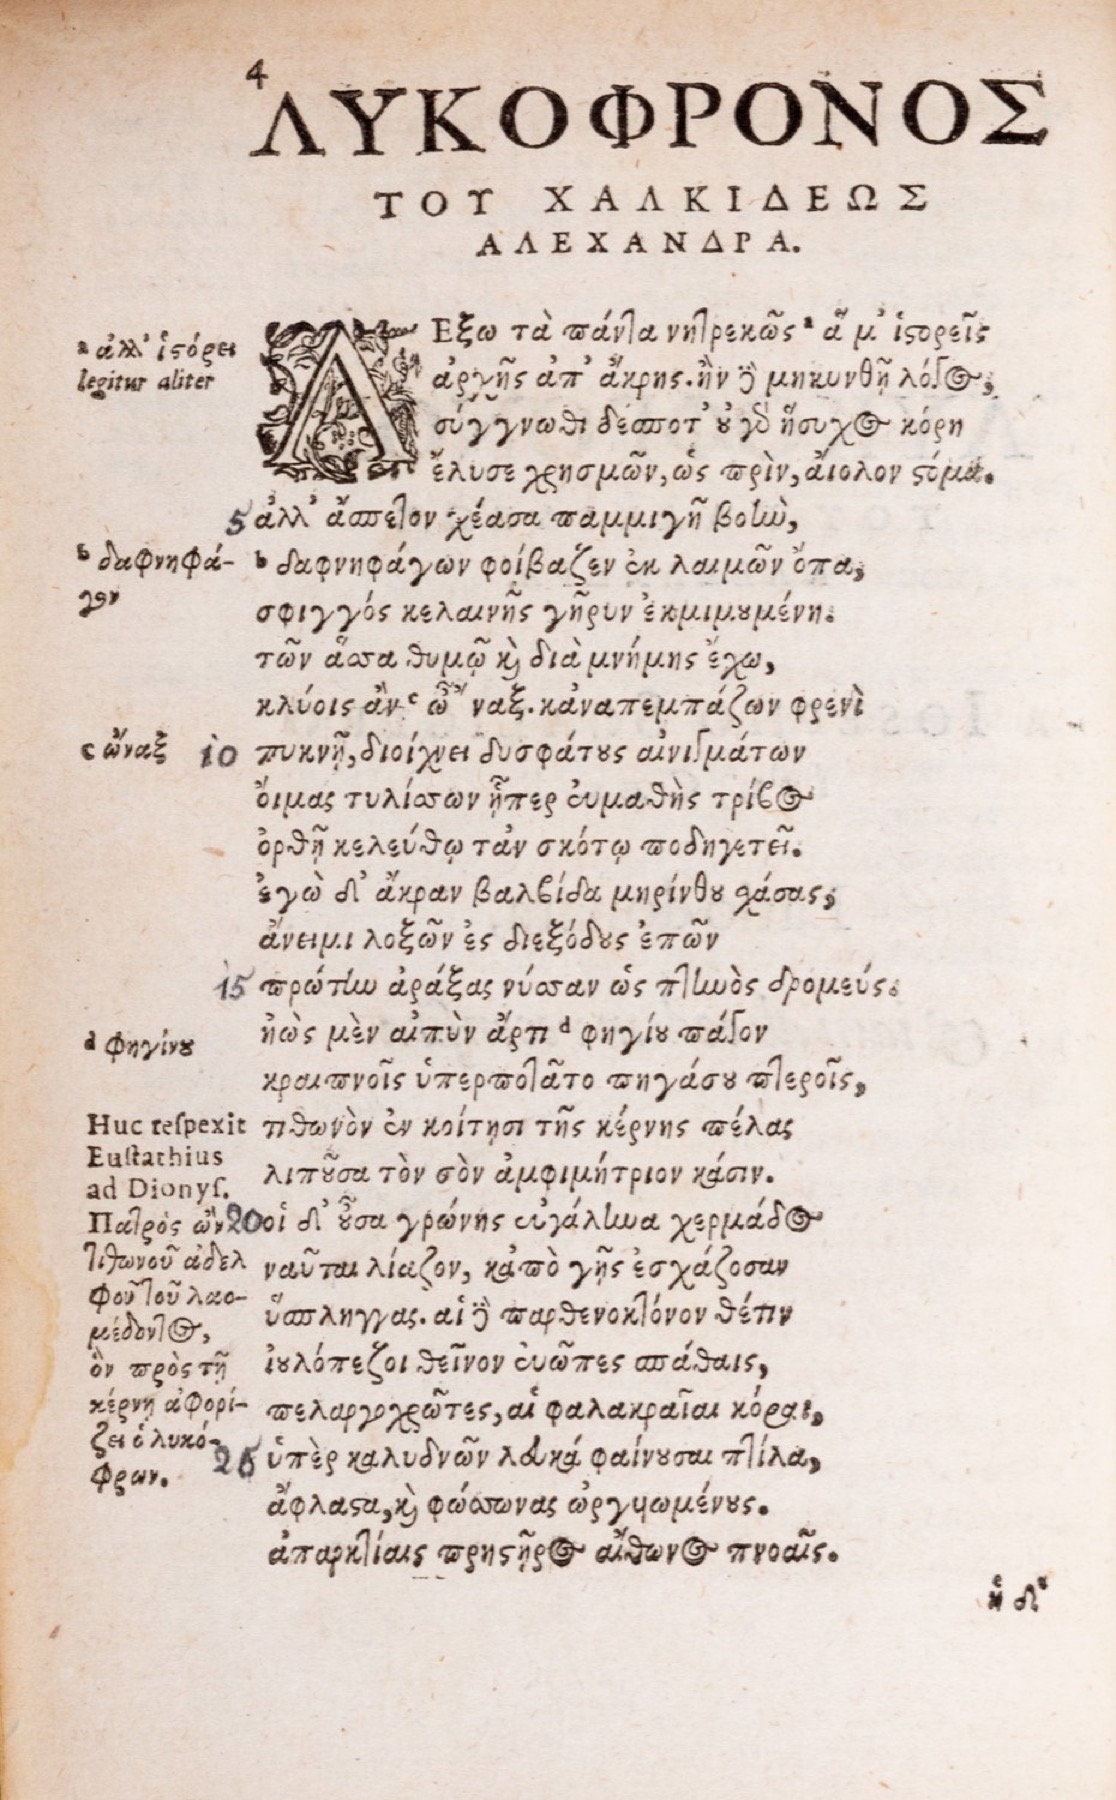 4
ΛΥΚΟΦΡΟΝΟΣ
ΤΟΥ ΧΑΛΚΙΔΕΩΣ
ΑΛΕΧΑΝΔΡΑ.
ΛΕξω τὰ πάντα νητρεκῶς ᵃ ἅ μ' ἱστορεῖς
ἀρχῆς ἀπ' ἄκρης. ἢν δὲ μηκυνθῇ λόγος,
σύγγνωθι δέσποτ' οὐ γὸ ἥσυχος κόρη
ἔλυσε χρησμῶν, ὡς πρὶν, ἄιολον στόμα.
5 ἀλλ' ἄσπετον χέασα παμμιγῆ βοὴν,
ᵇ δαφνηφάγων φοίβαζεν ἐκ λαιμῶν ὄπα,
σφιγγός κελαινῆς γῆρυν ἐκμιμουμένη.
τῶν ἅσσα θυμῷ καὶ διὰ μνήμης ἔχω,
κλύοις ἂν ᶜ ὦ ῎ναξ. κἀναπεμπάζων φρενὶ
10 πυκνῇ, διοίχνει δυσφάτους αἰνιγμάτων
ὄιμας τυλίσσων ᾗπερ εὐμαθὴς τρίβος
ὀρθῇ κελεύθῳ τἀν σκότῳ ποδηγετεῖ.
ἐγὼ δ' ἄκραν βαλβίδα μηρίνθου σχάσας,
ἄνειμι λοξῶν ἐς διεξόδους ἐπῶν
15 πρώτην ἀράξας νύσσαν ὡς πτηνὸς δρομεύς.
ἠὼς μὲν αἰπὺν ἄρτι ᵈ φηγίου πάγον
κραιπνοῖς ὑπερποτᾶτο πηγάσου πτεροῖς,
τιθωνὸν ἐν κοίτησι τῆς κέρνης πέλας
λιποῦσα τὸν σὸν ἀμφιμήτριον κάσιν.
20 οἱ δ' οὖσα γρώνης εὐγάληνα χερμάδος
ναῦται λίαζον, κἀπὸ γῆς ἐσχάζοσαν
ὕσπληγγας. αἱ δὲ παρθενοκτόνον θέτιν
ἰουλόπεζοι θεῖνον εὐῶπες σπάθαις,
πελαργοχρῶτες, αἱ φαλακραῖαι κόραι,
25 ὑπὲρ καλυδνῶν λευκά φαίνουσαι πτίλα,
ἄφλαστα, καὶ φώσσωνας ὠργυωμένους.
ἀπαρκτίαις πρηστῆρος αἴθωνος πνοαῖς.
ἡ δ'
ᵃ ἀλλ' ἱστόρει
legitur aliter
ᵇ δαφνηφά-
γον
ᶜ ὦναξ
ᵈ φηγίνου
Huc respexit
Eustathius
ad Dionys.
Πατρὸς ὢν
τιθωνοῦ ἀδελ
φοῦ τοῦ λαο-
μέδοντος,
ὃν πρὸς τῇ
κέρνῃ ἀφορί-
ζει ὁ λυκό-
φρων.